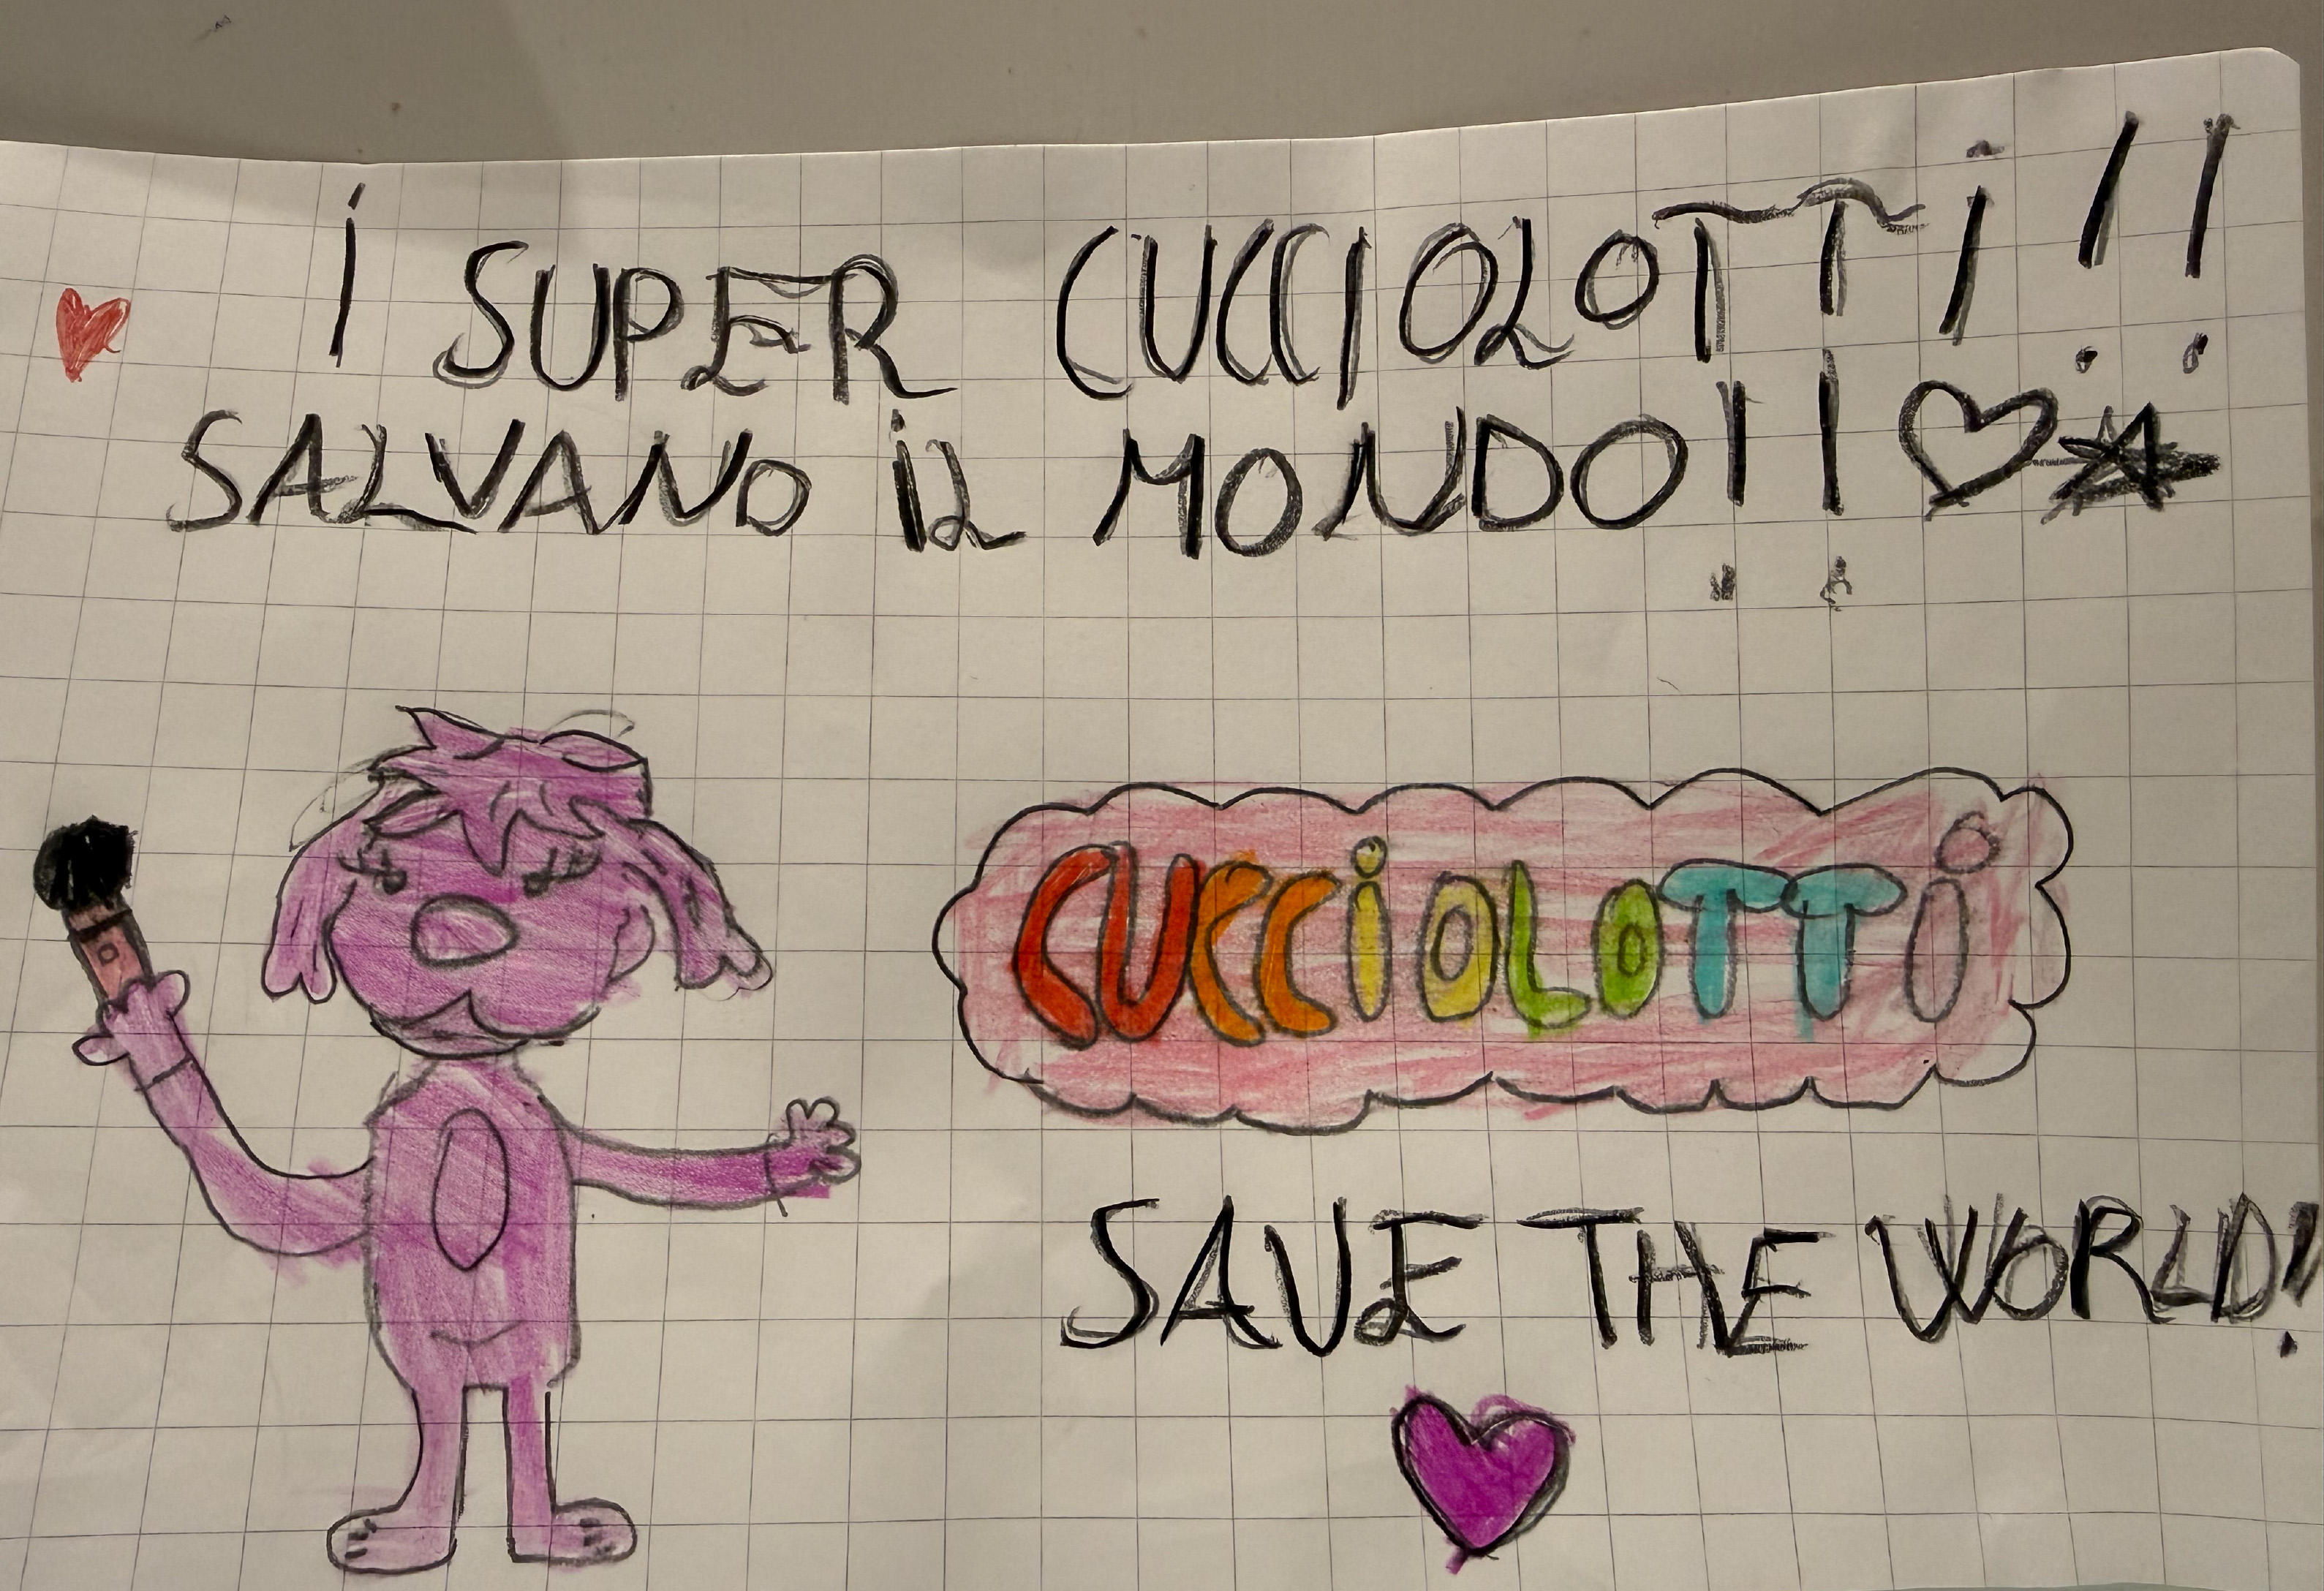 I SUPER CUCCIOLOTTI!!
SALVANO IL MONDO!!
CUCCIOLOTTI
SAVE THE WORLD!